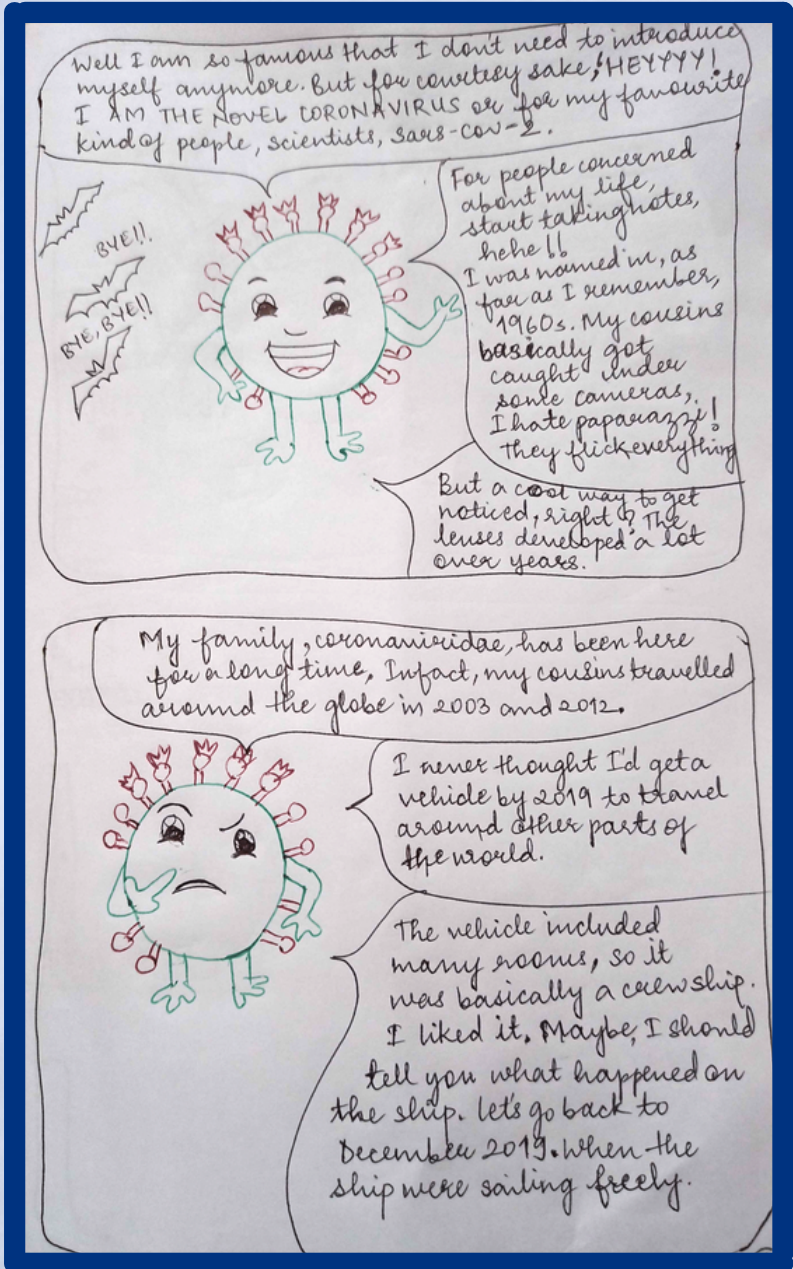 Well I am so famous that I don't need to introduce
myself anymore. But for courtesy sake, "HEYYYY!
I AM THE NOVEL CORONAVIRUS or for my favourite
kind of people, scientists, Sars-COV-2.
BYE!!.
BYE, BYE!!
For people concerned
about my life,
start taking notes,
hehe!!
I was named in, as
far as I remember,
1960s. My cousins
basically got
caught under
some cameras,.
I hate paparazzi!
They flick everything
But a cool way to get
noticed, right? The
lenses developed a lot
over years.
My family, coronaviridae, has been here
for a long time. Infact, my cousins travelled
around the globe in 2003 and 2012.
I never thought I'd get a
vehicle by 2019 to travel
around other parts of
the world.
The vehicle included
many rooms, so it
was basically a crew ship.
I liked it. Maybe, I should
tell you what happened on
the ship. let's go back to
December 2019. When the
ship were sailing freely.